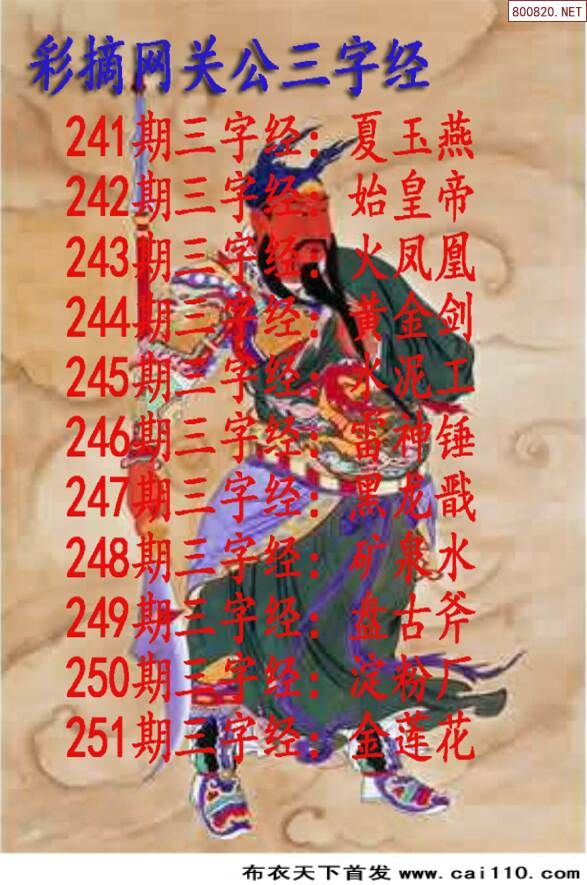 800820.NET
彩摘网关公三字经
241期三字经：夏玉燕
242期三字经：始皇帝
243期三字经：火凤凰
244期三字经：黄金剑
245期三字经：水泥工
246期三字经：雷神锤
247期三字经：黑龙戬
248期三字经：矿泉水
249期三字经：盘古斧
250期三字经：淀粉厂
251期三字经：金莲花
布衣天下首发 www.cai110.com